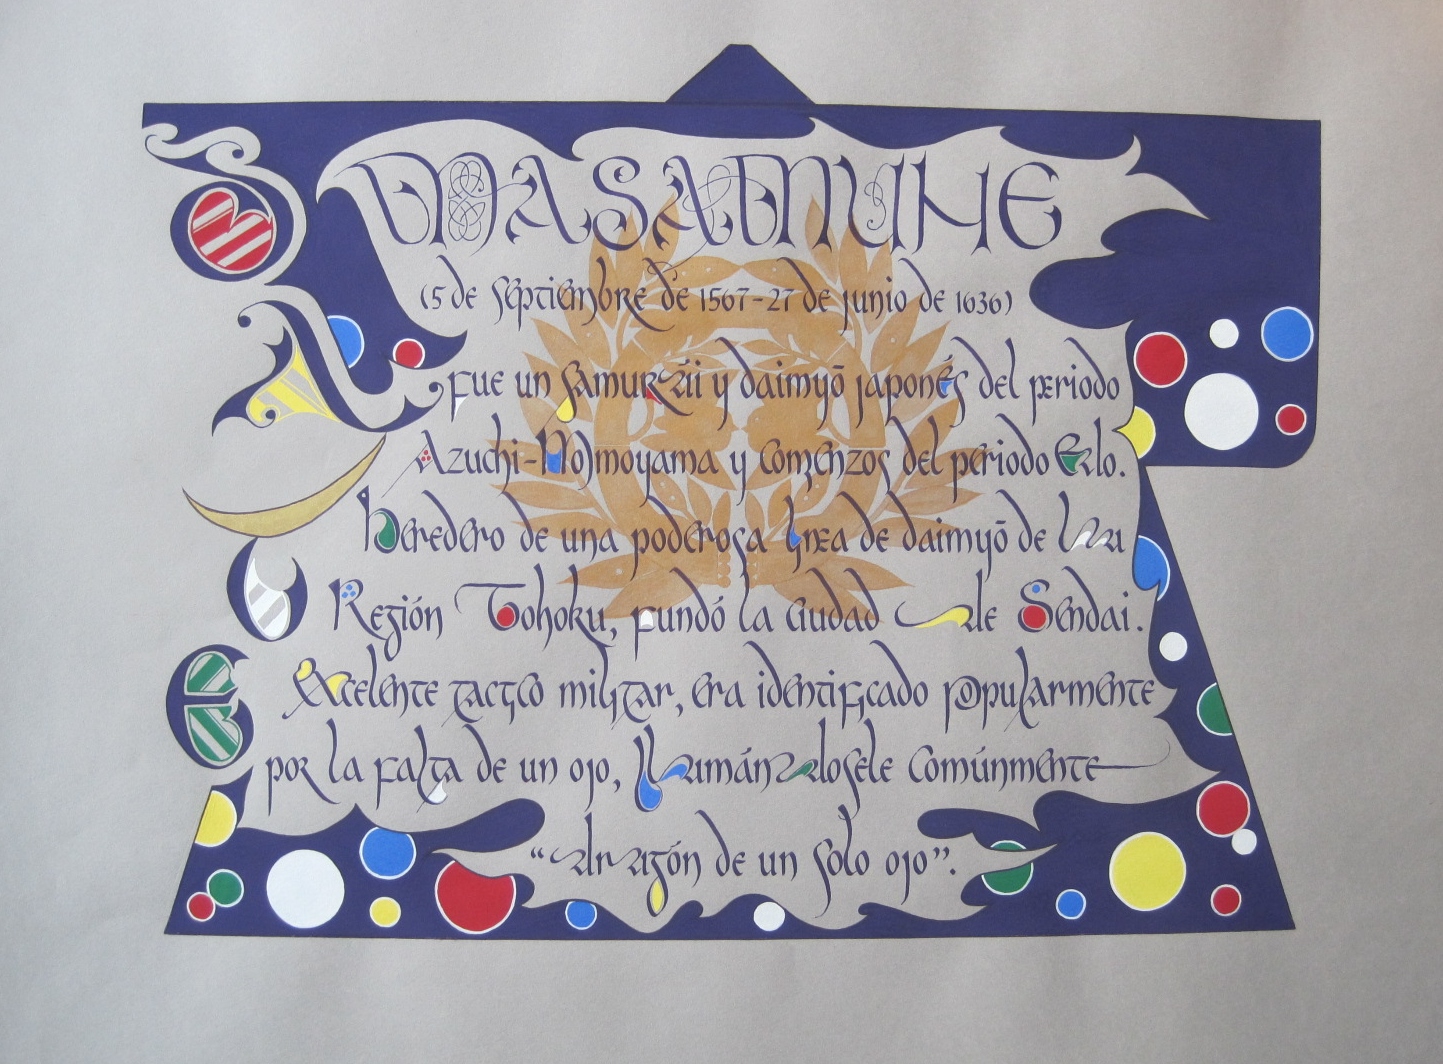 DATE
MASAMUNE
(5 de septiembre de 1567-27 de junio de 1636)
Fue un samurái y daimyō japonés del periodo
Azuchi-Momoyama y comienzos del periodo Edo.
Heredero de una poderosa línea de daimyō de la
Región Tohoku, fundó la ciudad de Sendai.
Excelente tactico militar, era identificado popularmente
por la falta de un ojo, llamándosele comúnmente
“dragón de un solo ojo”.